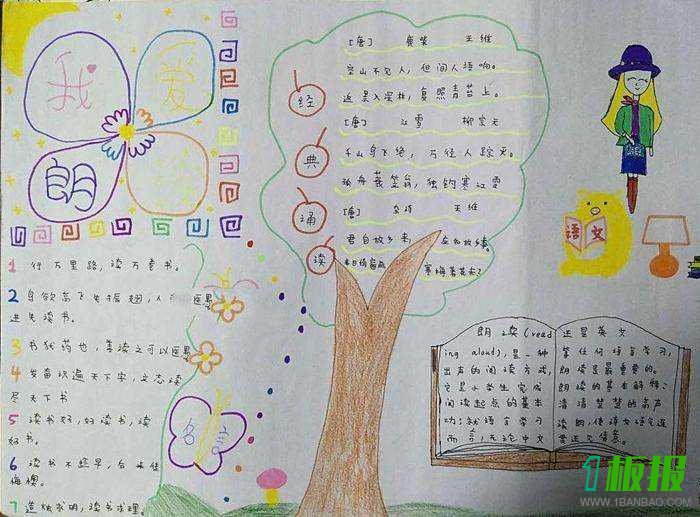 我
爱
朗
经
典
诵
读
[唐] 鹿柴 王维
空山不见人，但闻人语响。
返景入深林，复照青苔上。
[唐] 江雪 柳宗元
千山鸟飞绝，万径人踪灭。
孤舟蓑笠翁，独钓寒江雪
[唐] 杂诗 王维
君自故乡来，
语文
1 行万里路，读万卷书。
2 鸟欲高飞先振翅，人
进先读书。
3 书犹药也，善读之可以医愚
4 发奋识遍天下字，立志读
尽天下书
5 读书好，好读书，读
好书。
6 读书不趁早，后来徒
悔懊。
7 读书求理。
名言
朗读(read
ing aloud)，是一种
出声的阅读方式，
它是小学生完成
阅读起点的基本
功；就语言学习
而言，无论中文
还是英文
等任何语言学习，
朗读是最重要的。
朗读的基本解释：
清清楚楚的高声
读
1板报
WWW.1BANBAO.COM